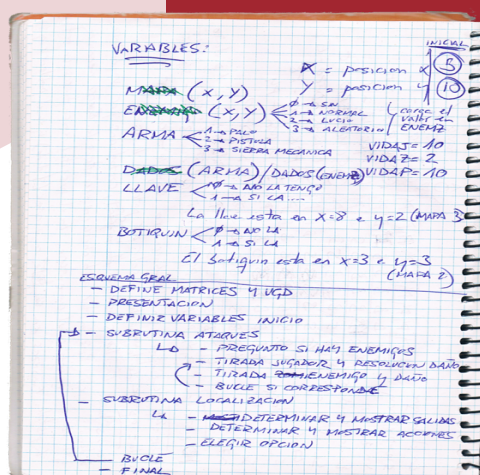 VARIABLES:
INICIAL
X = posicion x 5
Y = posicion y 10
MAPA (X, Y)
(X, Y) 0 → SIN
1 → NORMAL
2 → LUCIO
3 → ALEATORIO
carga el valor en ENEMZ
ARMA 1 → PALO
2 → PISTOLA
3 → SIERRA MECANICA
VIDAJ = 10
VIDAZ = 2
VIDAP = 10
DADOS (ARMA) / DADOS (ENEMZ)
LLAVE 0 → NO LA TENGO
1 → SI LA ....
La llave esta en x=8 e y=2 (MAPA 3)
BOTIQUIN 0 → NO LA
1 → SI LA
El botiquin esta en x=3 e y=3
(MAPA 2)
ESQUEMA GRAL
- DEFINE MATRICES Y UGD
- PRESENTACION
- DEFINIR VARIABLES INICIO
- SUBRUTINA ATAQUES
- PREGUNTO SI HAY ENEMIGOS
- TIRADA JUGADOR Y RESOLUCION DAÑO
- TIRADA ENEMIGO Y DAÑO
- BUCLE SI CORRESPONDE
- SUBRUTINA LOCALIZACION
- DETERMINAR Y MOSTRAR SALIDAS
- DETERMINAR Y MOSTRAR ACCIONES
- ELEGIR OPCION
- BUCLE
- FINAL